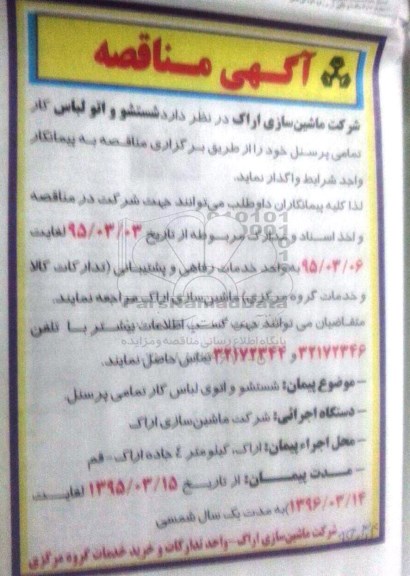 آگهی مناقصه
شرکت ماشین‌سازی اراک در نظر دارد شستشو و اتو لباس کار
تمامی پرسنل خود را از طریق برگزاری مناقصه به پیمانکار
واجد شرایط واگذار نماید.
لذا کلیه پیمانکاران داوطلب می‌توانند جهت شرکت در مناقصه
و اخذ اسناد و مدارک مربوطه از تاریخ ۹۵/۰۳/۰۳ لغایت
۹۵/۰۳/۰۶ به واحد خدمات رفاهی و پشتیبانی (تدارکات کالا
و خدمات گروه مرکزی) ماشین‌سازی اراک مراجعه نمایند.
متقاضیان می توانند جهت کسب اطلاعات بیشتر با تلفن
۳۲۱۷۲۳۴۶ و ۳۲۱۷۲۳۴۴ تماس حاصل نمایند.
– موضوع پیمان: شستشو و اتوی لباس کار تمامی پرسنل
– دستگاه اجرائی: شرکت ماشین‌سازی اراک
– محل اجراء پیمان: اراک، کیلومتر ٤ جاده اراک - قم
– مدت پیمان: از تاریخ ۱۳۹۵/۰۳/۱۵ لغایت
۱۳۹۶/۰۳/۱۴) به مدت یک سال شمسی
شرکت ماشین‌سازی اراک - واحد تدارکات و خرید خدمات گروه مرکزی
ParsNamadData
پایگاه اطلاع رسانی مناقصه و مزایده